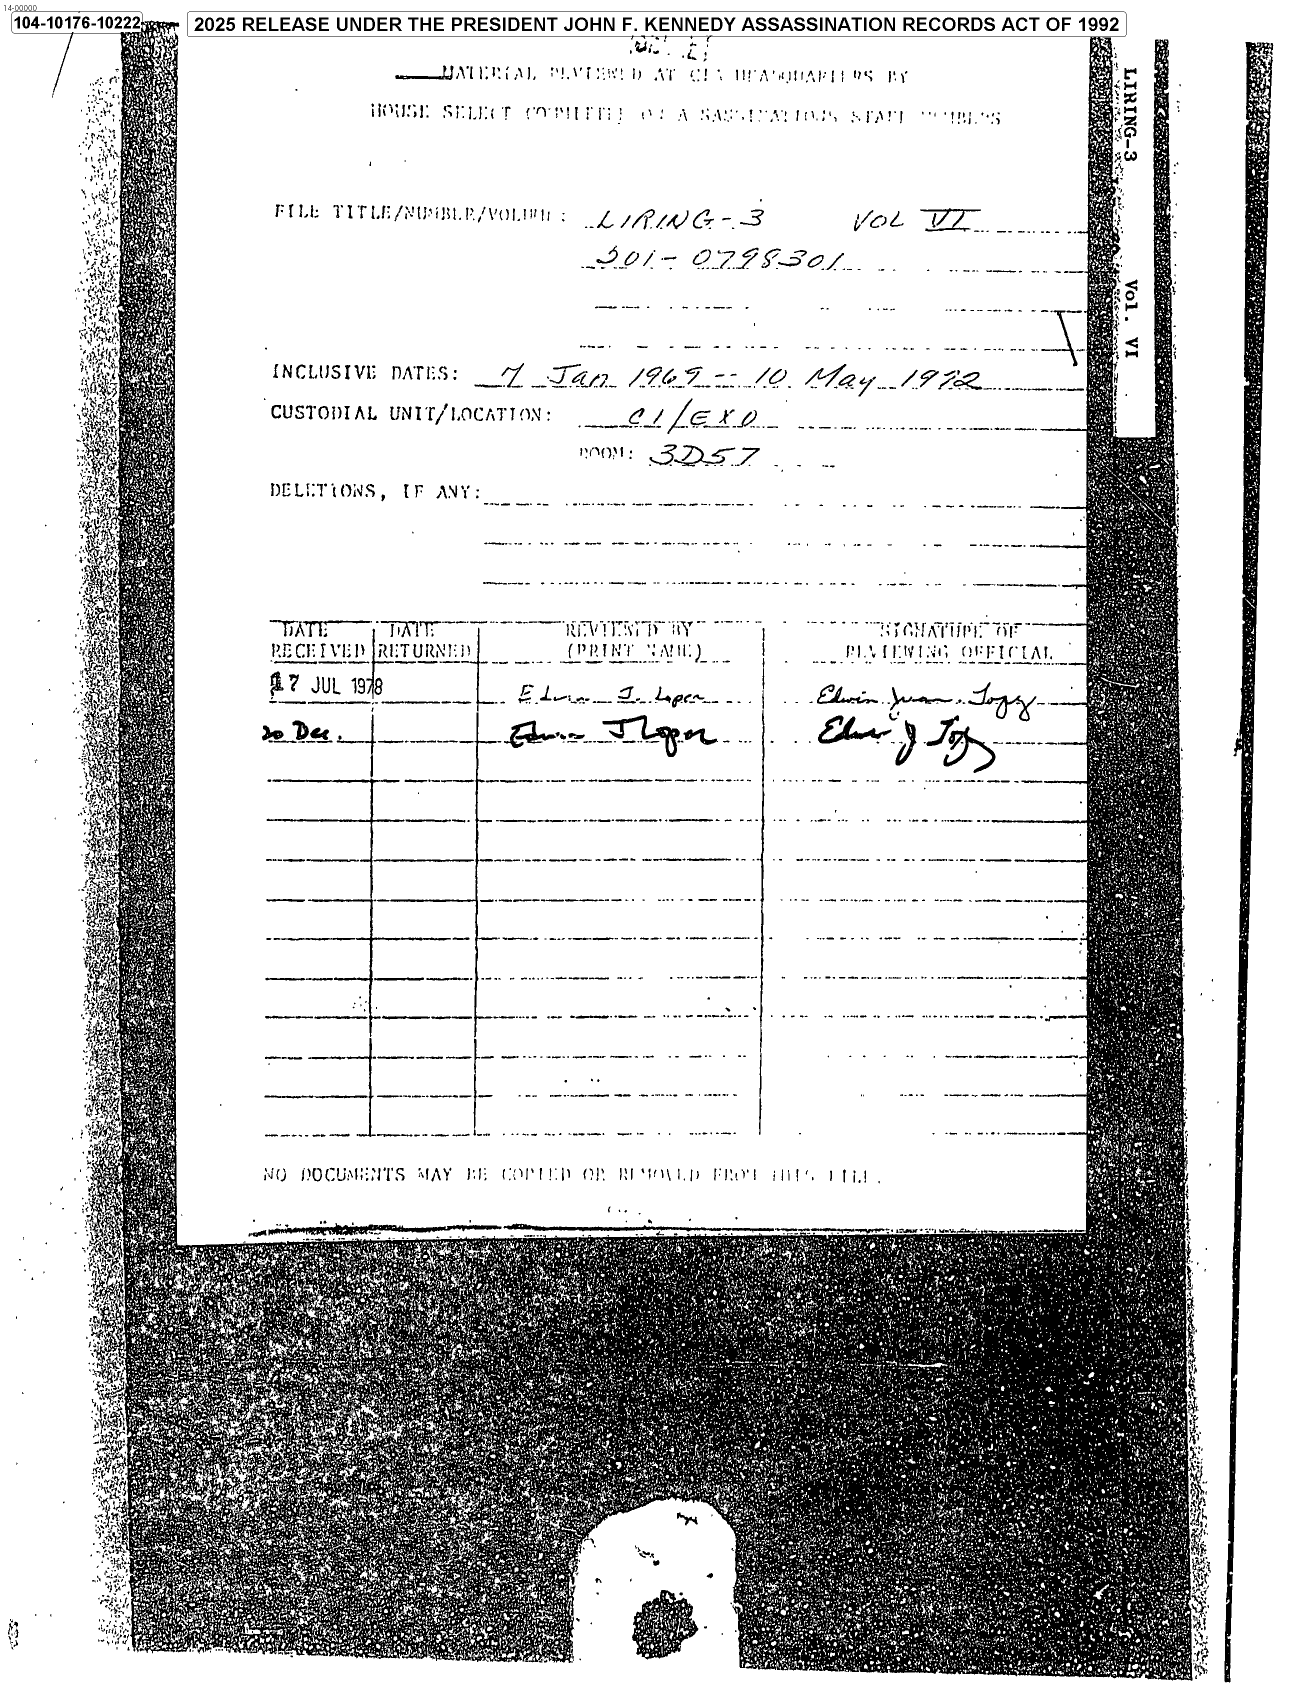 14-00000
104-10176-10222
2025 RELEASE UNDER THE PRESIDENT JOHN F. KENNEDY ASSASSINATION RECORDS ACT OF 1992
MATERIAL REVIEWED AT CIA HEADQUARTERS BY
HOUSE SELECT COMMITTEE ON ASSASSINATIONS STAFF MEMBERS
LIRING-3 Vol. VI
FILE TITLE/NUMBER/VOLUME: LIRING-3 VOL VI
201-0798301
INCLUSIVE DATES: 7 Jan 1969 -- 10 May 1972
CUSTODIAL UNIT/LOCATION: CI/EXO
ROOM: 3D57
DELETIONS, IF ANY:
DATE RECEIVED DATE RETURNED REVIEWED BY (PRINT NAME) SIGNATURE OF REVIEWING OFFICIAL
17 JUL 1978 Edwin J. Lopez Edwin Juan Lopez
20 Dec. Edwin J Lopez Edwin J
NO DOCUMENTS MAY BE COPIED OR REMOVED FROM THIS FILE.